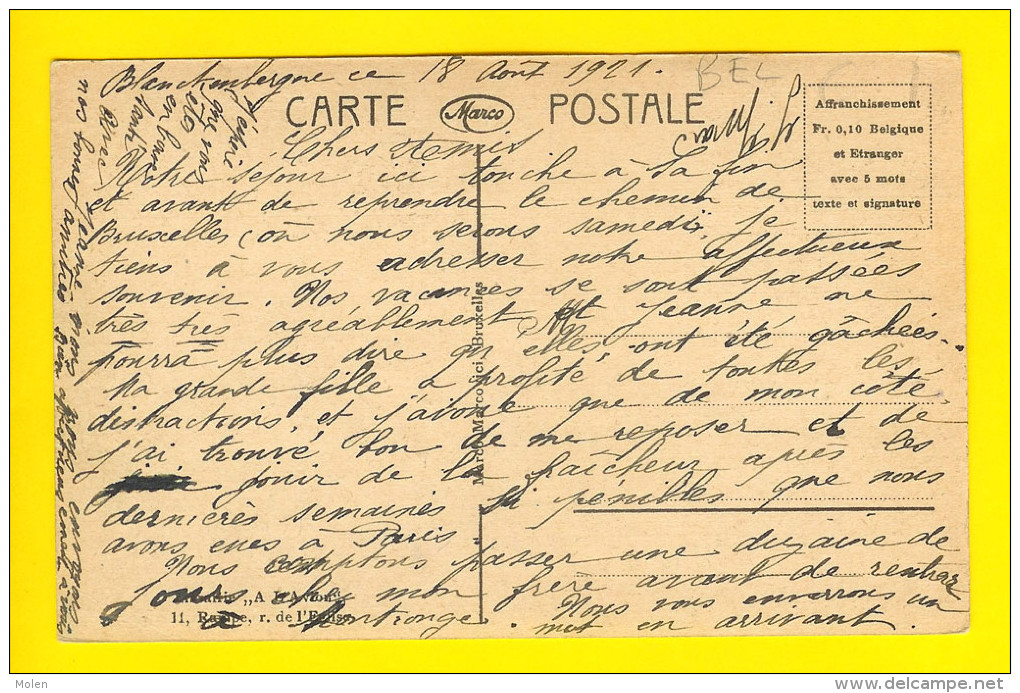 Blanckenbergne ce 18 Août 1921.
BEL
CARTE Marco POSTALE
Affranchissement
Fr. 0,10 Belgique
et Etranger
avec 5 mots
texte et signature
Chers Amis
Notre séjour ici touche à sa fin
et avant de reprendre le chemin de
Bruxelles, où nous serons samedi, je
tiens à vous adresser notre affectueux
souvenir. Nos vacances se sont passées
très très agréablement et Jeanne ne
pourra plus dire qu'elles ont été gâchées.
Ma grande fille a profité de toutes les
distractions, et j'avoue que de mon côté,
j'ai trouvé bon de me reposer et de
jouir de la fraîcheur après les
dernières semaines si pénibles que nous
avons eues à Paris
Nous comptons passer une dizaine de
jours chez mon frère avant de rentrer
à Montrouge. Nous vous enverrons un
mot en arrivant.
J'espère
que vous
êtes
en bonne
santé
Avec
nos bonnes amitiés
Jeanne vous
Bien
Marco Marcovici Bruxelles
„A L'Avion"
11, Rampe, r. de l'Eglise
Molen
delcampe.net